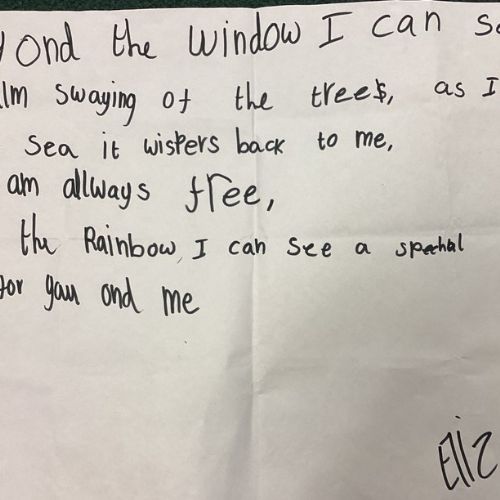 ond the window I can s
lm swaying of the trees, as I
sea it wispers back to me,
am allways free,
the Rainbow, I can see a spechal
for you ond me
Eliz